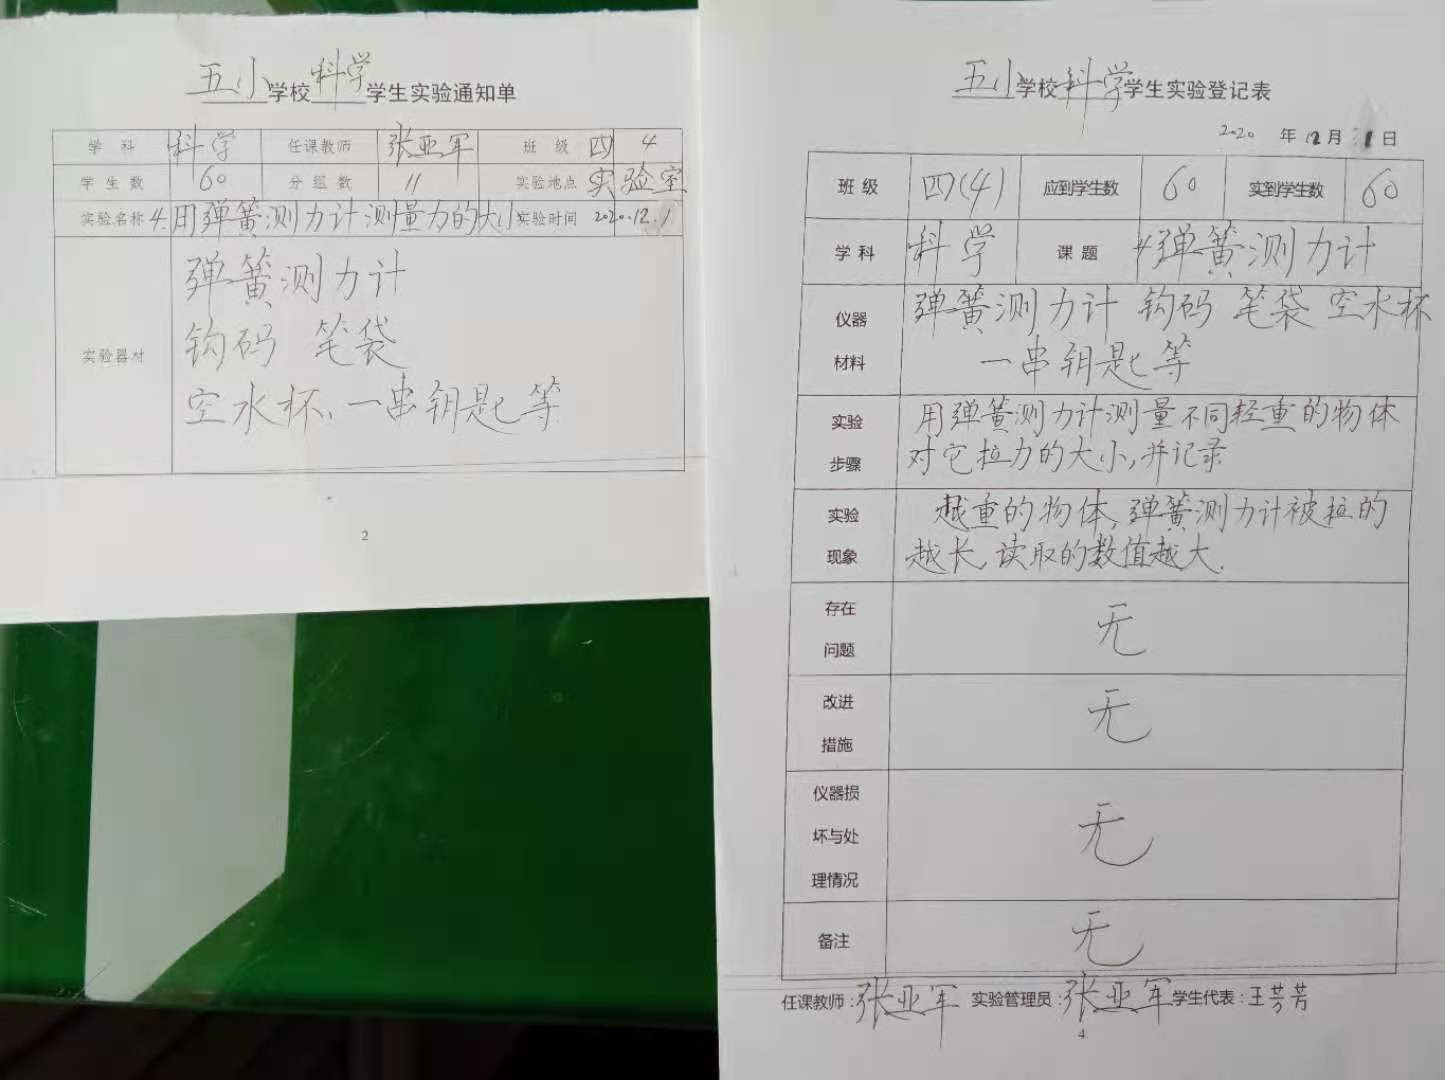 五小学校科学学生实验通知单
学 科 科学 任课教师 张亚军 班 级 四 4
学 生 数 60 分 组 数 11 实验地点 实验室
实验名称 4.用弹簧测力计测量力的大小 实验时间 2020.12.1
实验器材
弹簧测力计
钩码 笔袋
空水杯、一串钥匙等
2
五小学校科学学生实验登记表
2020 年 12 月 1 日
班 级 四(4) 应到学生数 60 实到学生数 60
学 科 科学 课 题 4弹簧测力计
仪器
材料
弹簧测力计 钩码 笔袋 空水杯
一串钥匙等
实验
步骤
用弹簧测力计测量不同轻重的物体
对它拉力的大小,并记录
实验
现象
越重的物体,弹簧测力计被拉的
越长,读取的数值越大.
存在
问题
无
改进
措施
无
仪器损
坏与处
理情况
无
备注
无
任课教师:张亚军 实验管理员:张亚军 学生代表:王芳芳
4